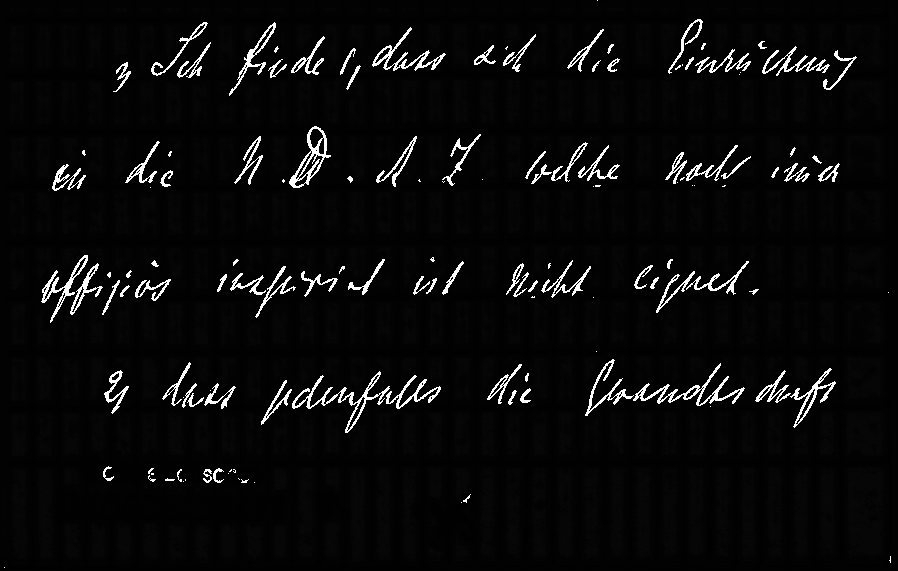 1) Ich finde 1, dass sich die Einrückung
in die N. D. A. Z. welche noch immer
offiziös inspirirt ist nicht eignet.
2) dass jedenfalls die Gesandtschaft